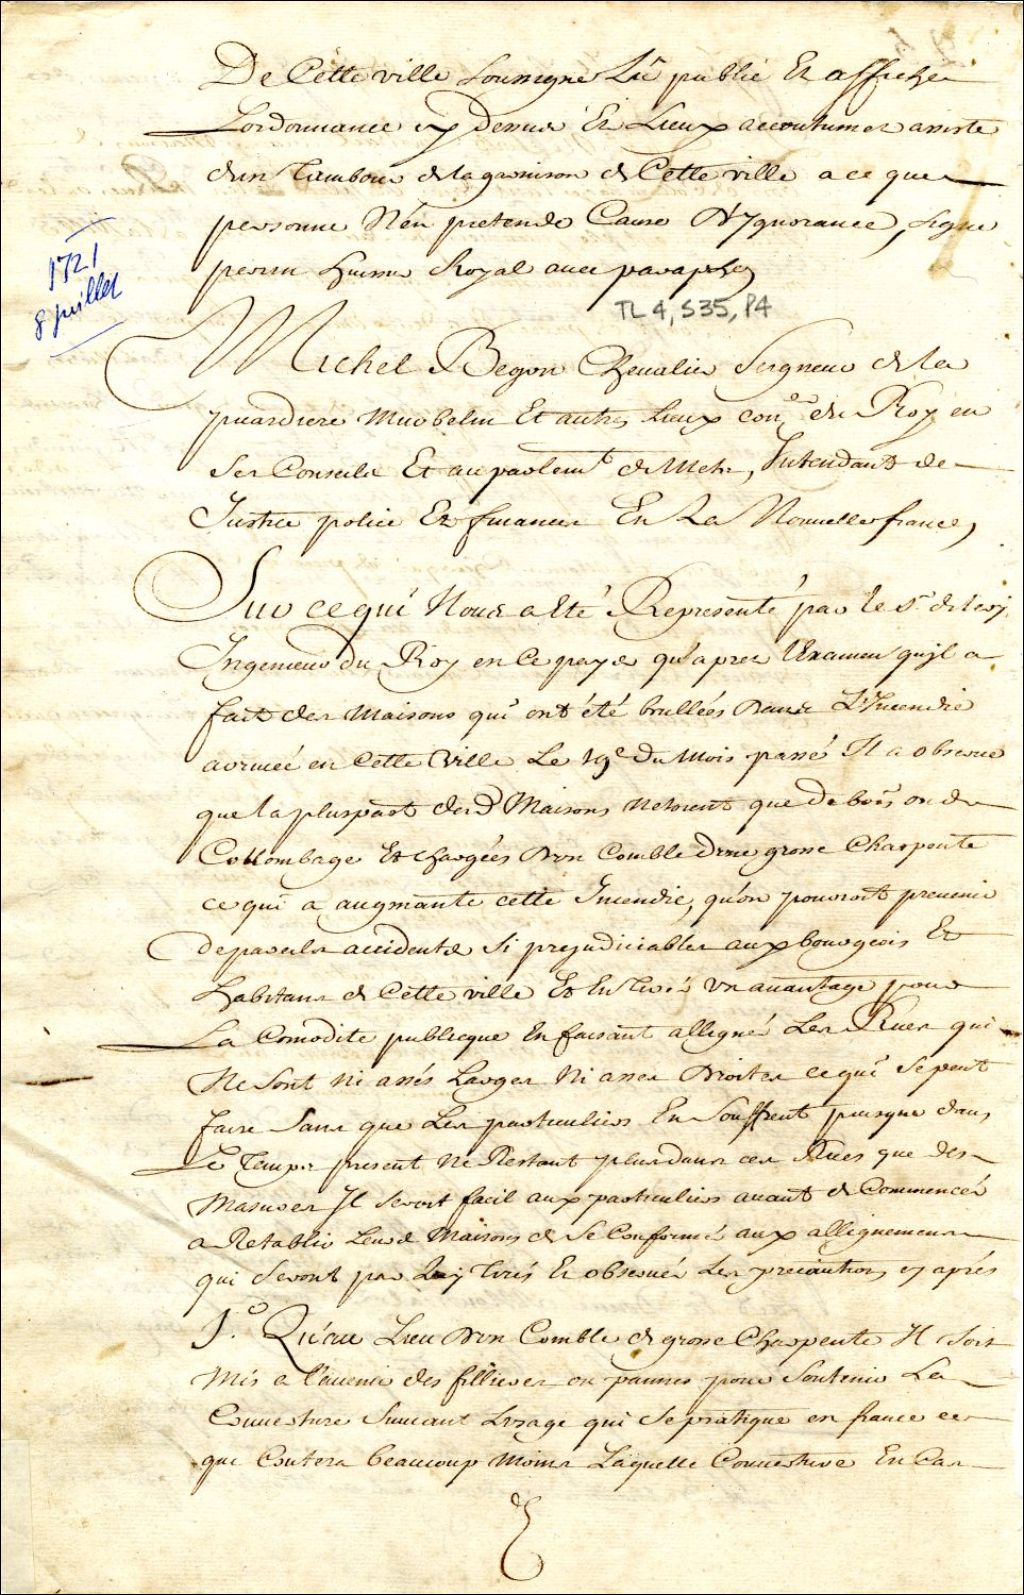 De Cette ville soussigné Lû publié Et affiché
Lordonnance cy dessus Es Lieux accoutumes assisté
dun Tambour de la garnison de Cette ville a ce que
personne N'en pretende Cause D'Ygnorance, signé
huissier Royal avec paraphe
1721
8 juillet
TL 4, S35, P4
Michel Begon Chevalier Seigneur de la
picardiere Murbelin Et autres Lieux con.er du Roy en
Ses Conseils Et au parlem.t de Metz, Intendant de
Justice police Et finances En La Nouvelle france,
Sur ce qui Nous a Eté Representé par le S.r de lery
Ingenieur du Roy en Ce pays qu'apres l'Examen qu'jl a
fait des Maisons qui ont été brullées Dans L'Incendie
arrivée en Cette Ville Le 19.e Du Mois passé Il a observé
que la pluspart des d. Maisons Netoient que De bois ou de
Collombage Et chargées D'un Comble D'une grosse Charpente
ce qui a augmanté cette Incendie, qu'on pouroit prevenir
de pareils accidents Si prejudiciables aux bourgeois Et
habitans de Cette ville Et En tirer Un avantage pour
La Comodité publicque En faisant alligner Les Rues qui
Ne Sont Ni assés Larges Ni asses Droites ce qui Se peut
faire Sans que Les particuliers En Souffrent puisque dans
Le Temps present Ne Restant plus dans ces Rues que des
Masures Il Seroit facil aux particuliers avant de Commencer
a Retablir Leurs Maisons de Se Conformer aux allignemens
qui Seront par Luy tirés Et observer Les precautions cy aprés
1.o Qu'au Lieu D'un Comble de grosse Charpente Il Soit
Mis a l'avenir des fillieres ou pannes pour Soutenir La
Couverture Suivant Lusage qui Se pratique en france ce
qui Coutera beaucoup Moins Laquelle Couverture En Cas
de